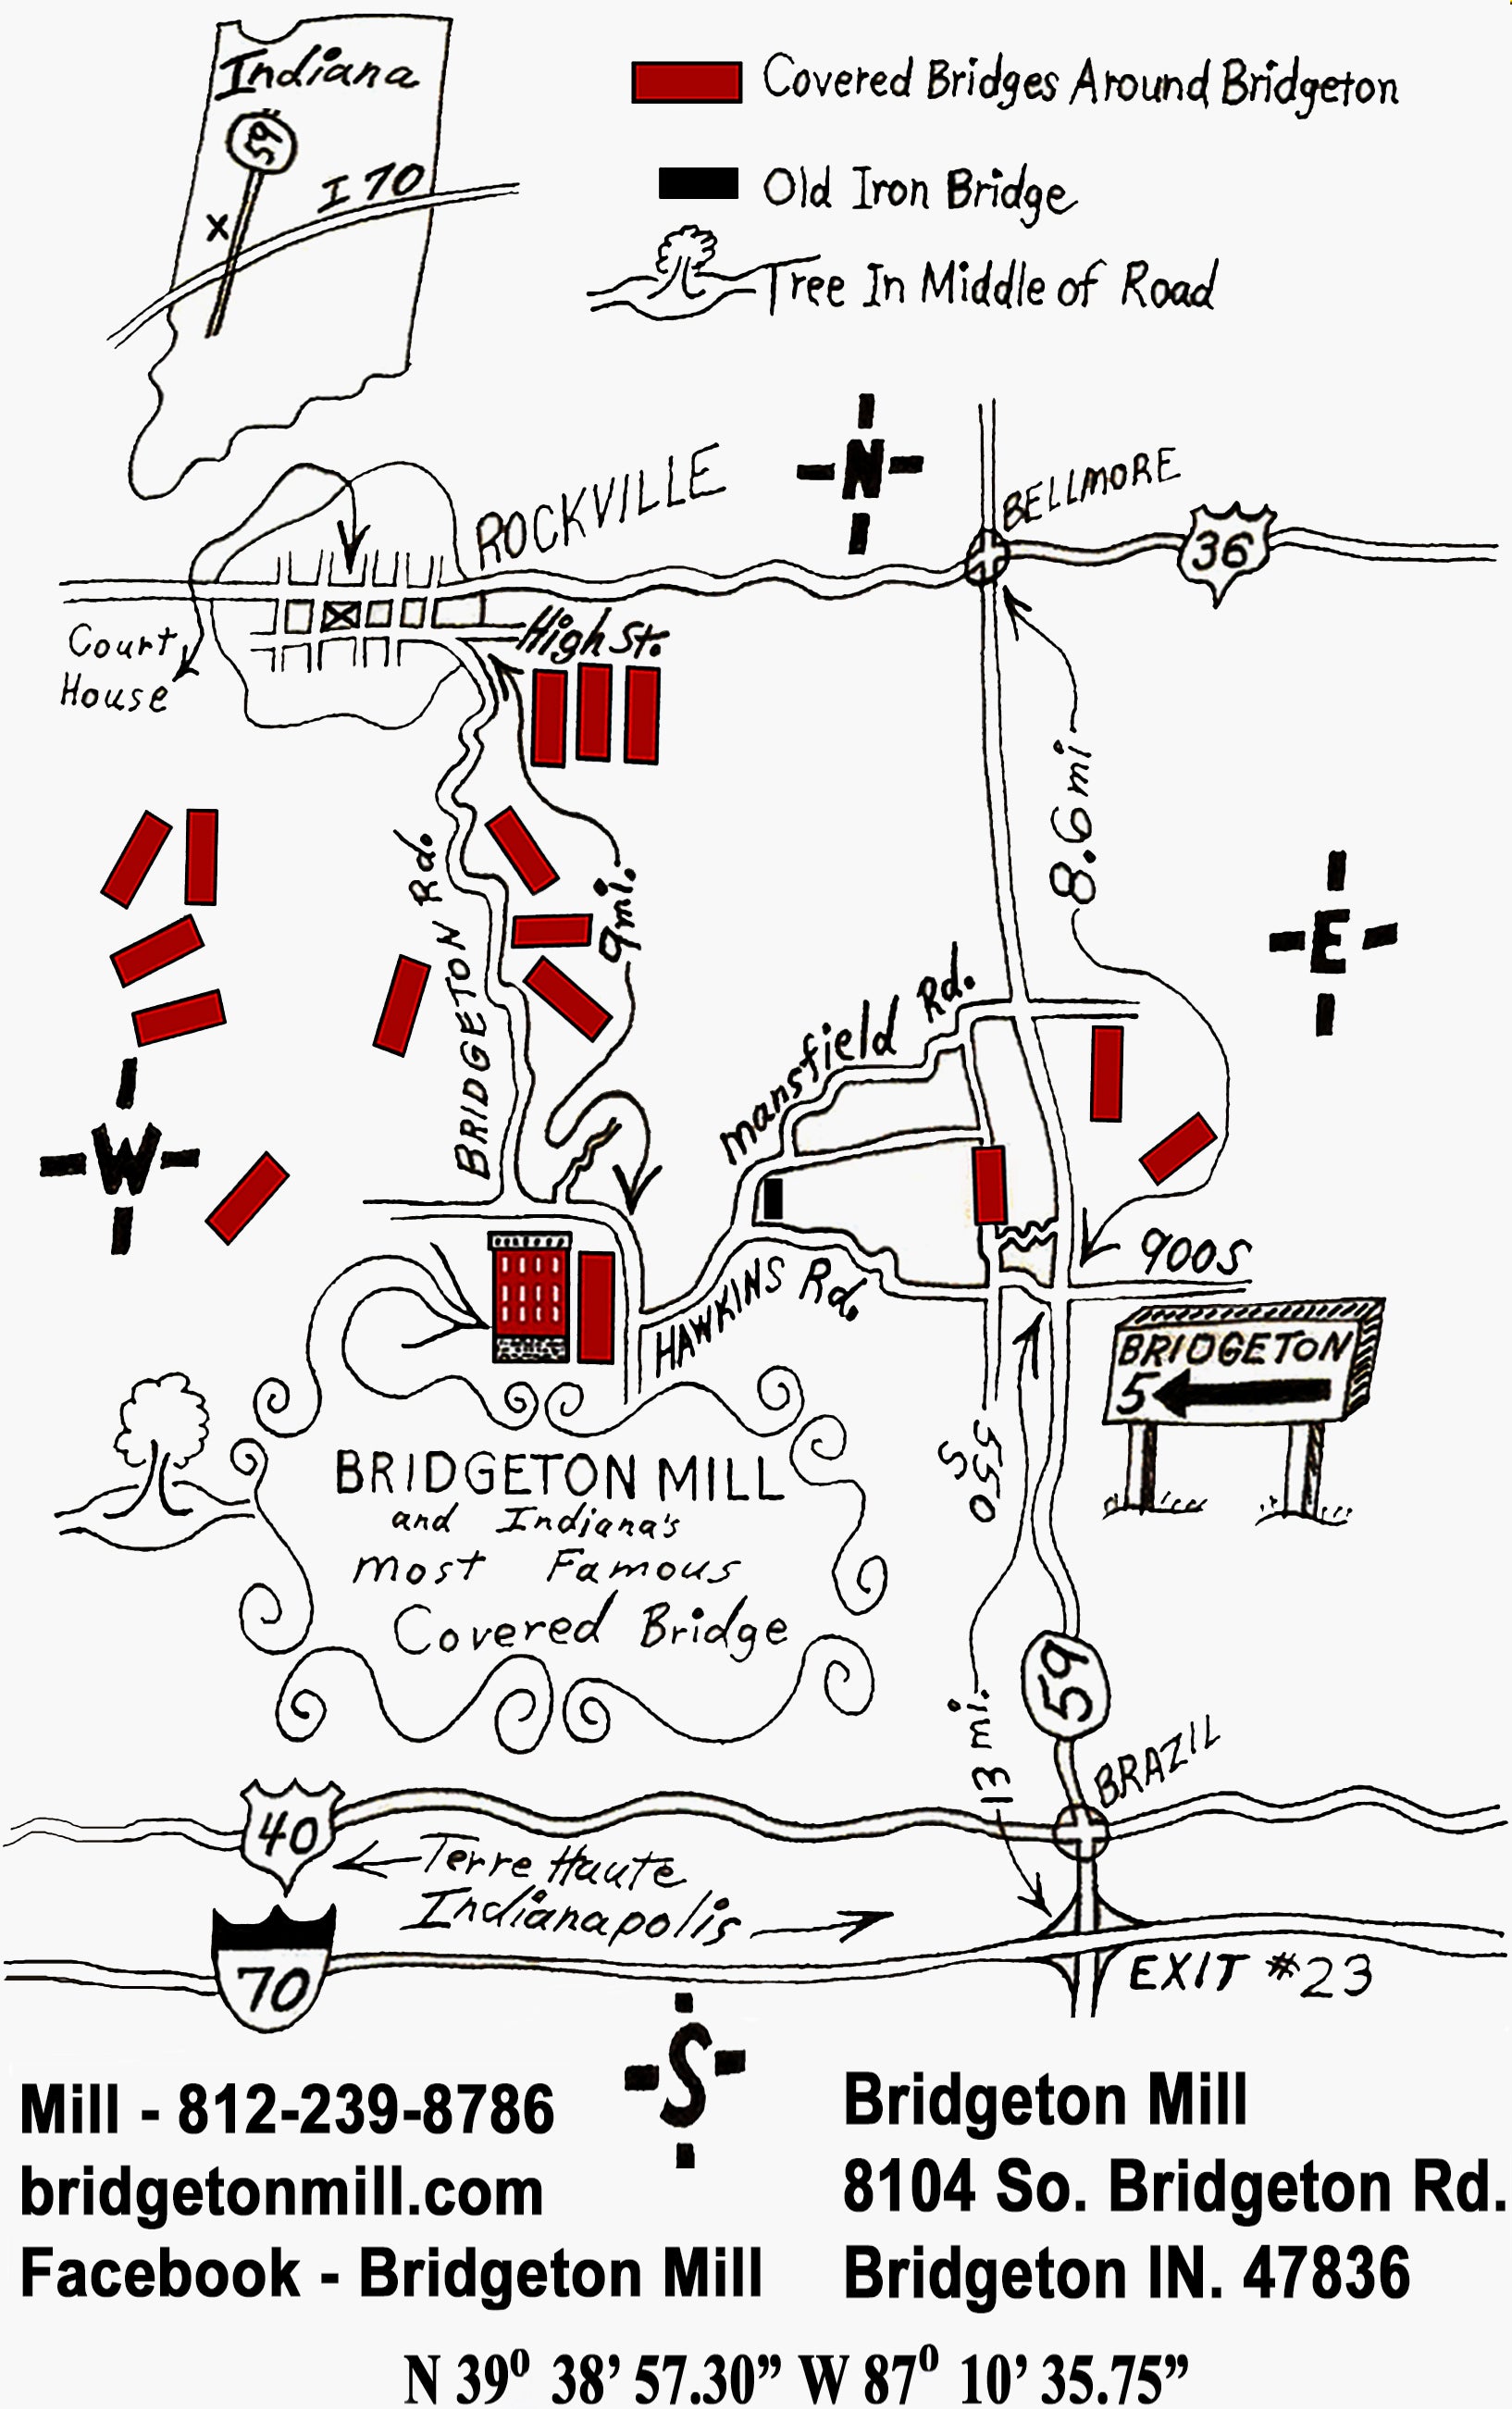 Indiana
59
I 70
X
Covered Bridges Around Bridgeton
Old Iron Bridge
Tree In Middle of Road
N
ROCKVILLE
BELLMORE
36
Court
House
High St.
BRIDGETON Rd.
9mi.
8.6 mi
E
mansfield Rd.
W
900S
HAWKINS Rd.
BRIDGETON
5
550
S
BRIDGETON MILL
and Indiana's
most Famous
Covered Bridge
13 mi.
59
BRAZIL
40
Terre Haute
Indianapolis
70
EXIT #23
S
Mill - 812-239-8786
bridgetonmill.com
Facebook - Bridgeton Mill
Bridgeton Mill
8104 So. Bridgeton Rd.
Bridgeton IN. 47836
N 39⁰ 38’ 57.30” W 87⁰ 10’ 35.75”